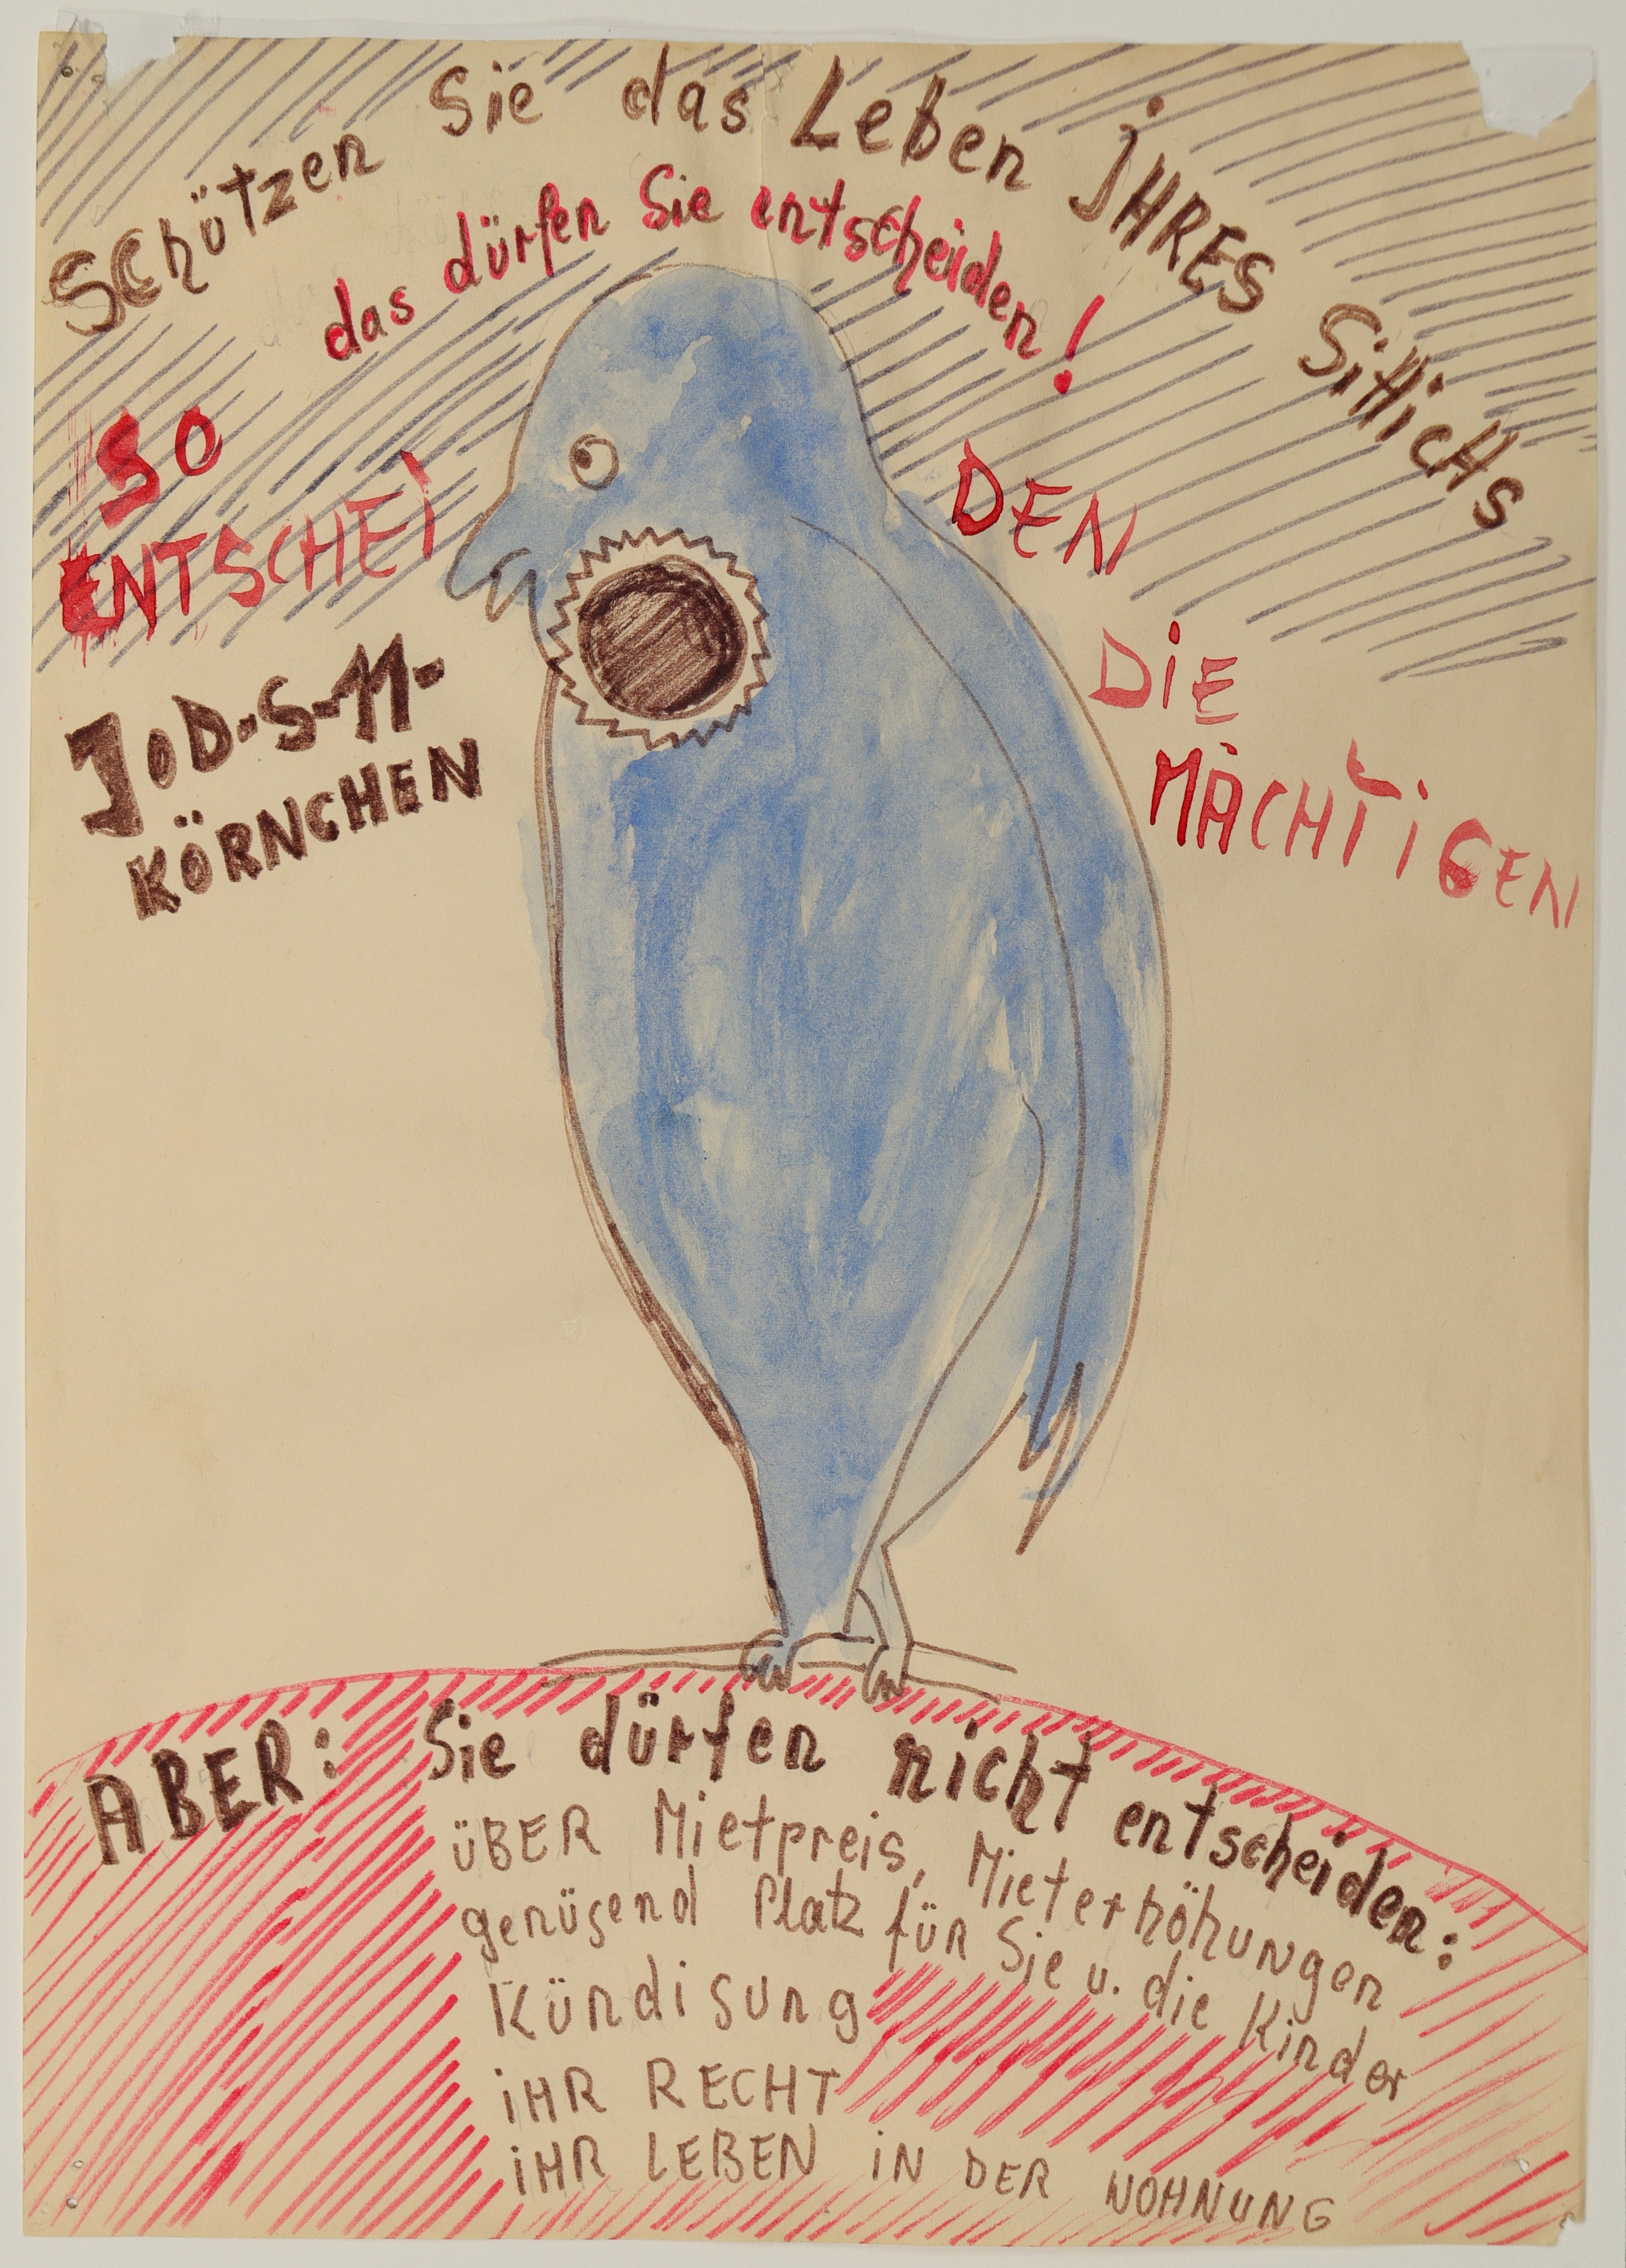 Schützen Sie das Leben jHRES SittictHs
das dürfen Sie entscheiden!
SO
ENTSCHEi
DEN
DiE
MÄCHTiGEN
JOD-S-11-
KÖRNCHEN
ABER: Sie dürfen nicht entscheiden:
üBER Mietpreis, Mieterhöhungen
genügend Platz für Sie u. die Kinder
Kündigung
iHR RECHT
iHR LEBEN iN DER WOHNUNG